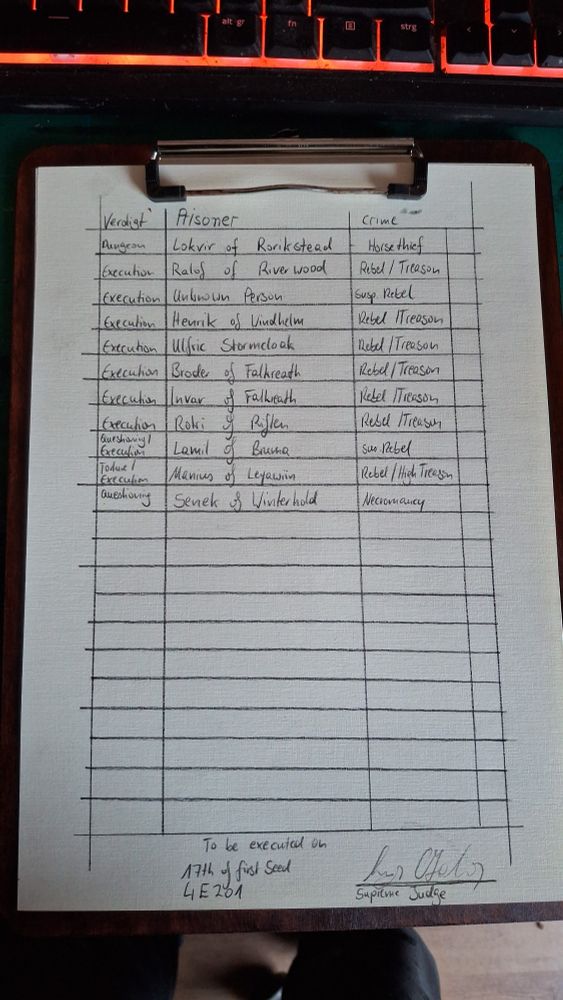 alt gr fn strg < >
Verdigt Prisoner Crime
Dungeon Lokvir of Rorikstead Horsethief
Execution Ralof of Riverwood Rebel / Treason
Execution Unknown Person Susp. Rebel
Execution Henrik of Vindhelm Rebel / Treason
Execution Ulfric Stormcloak Rebel / Treason
Execution Broder of Falkreath Rebel / Treason
Execution Invar of Falkreath Rebel / Treason
Execution Roki of Riften Rebel / Treason
Questioning / Execution Lamil of Bruma sus. Rebel
Execution Manius of Leyawiin Rebel / High Treason
Questioning Senek of Winterhold Necromancy
To be executed on
17th of first Seed
4E201
Supreme Judge